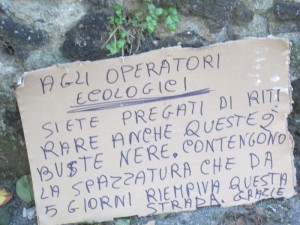 AGLI OPERATORI
ECOLOGICI
SIETE PREGATI DI RITI
RARE ANCHE QUESTE 2
BUSTE NERE. CONTENGONO
LA SPAZZATURA CHE DA
5 GIORNI RIEMPIVA QUESTA
STRADA. GRAZIE